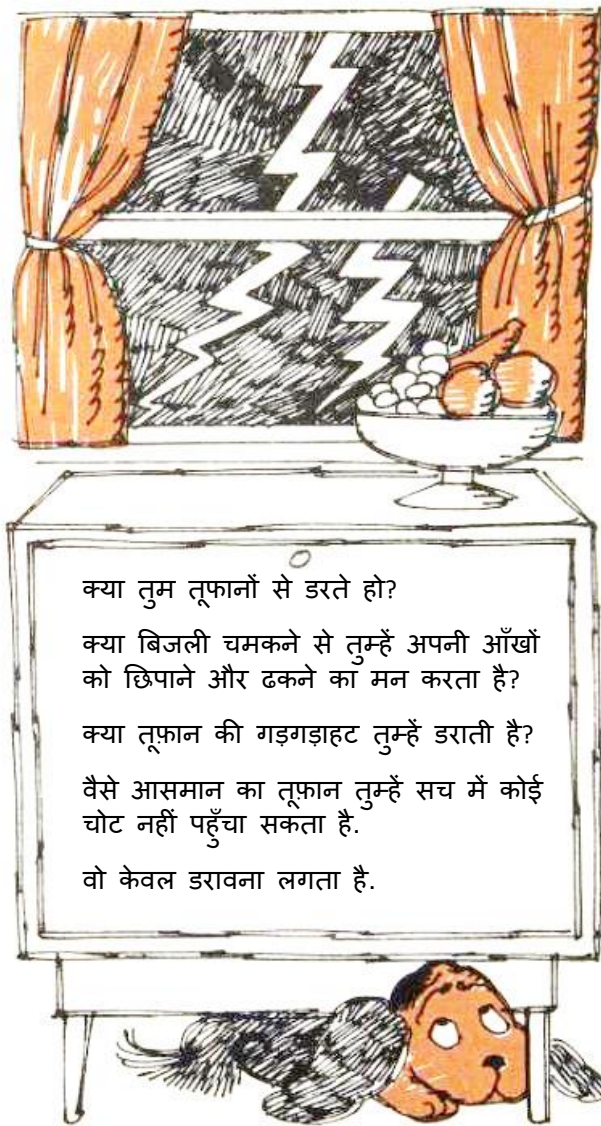 क्या तुम तूफानों से डरते हो?
क्या बिजली चमकने से तुम्हें अपनी आँखों
को छिपाने और ढकने का मन करता है?
क्या तूफ़ान की गड़गड़ाहट तुम्हें डराती है?
वैसे आसमान का तूफ़ान तुम्हें सच में कोई
चोट नहीं पहुँचा सकता है.
वो केवल डरावना लगता है.